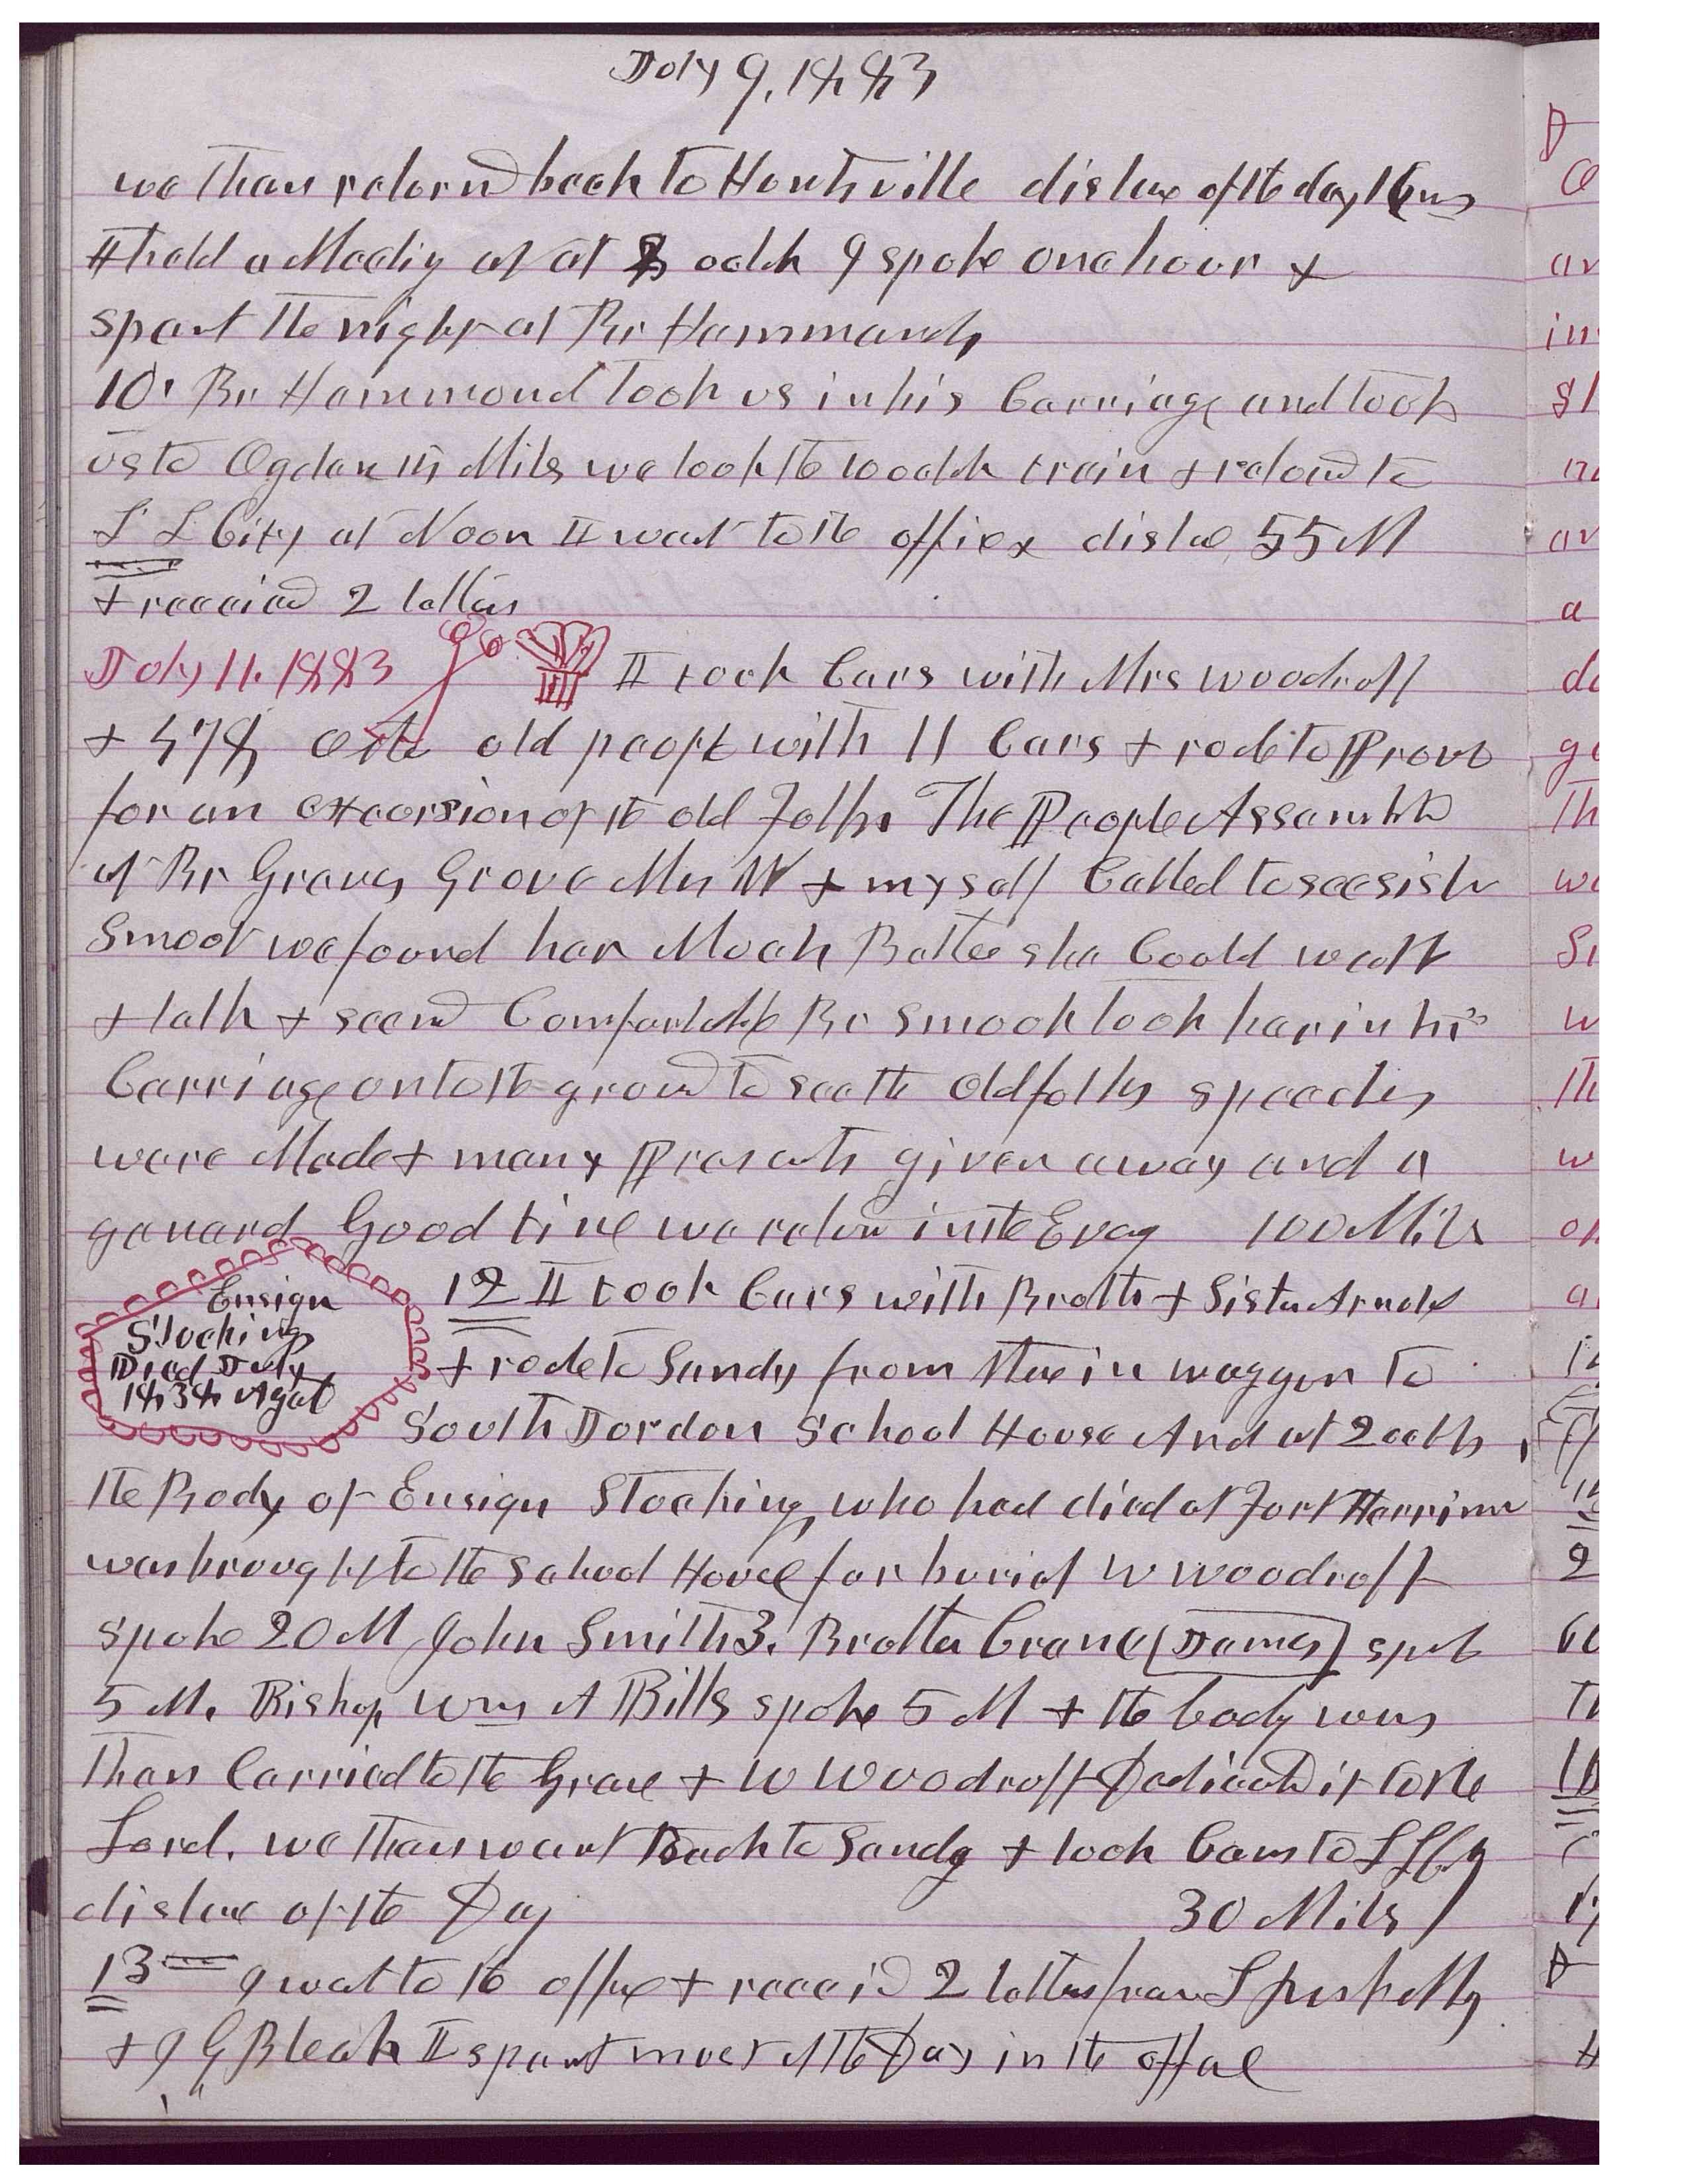 July 9, 1883
we then returnd back to Huntsville distance of the day 16 ms
I held a Meeting at at 8 oclok I spoke one hour &
spent the night at Br Hammonds
10. Br Hammond took us in his Carriage and took
us to Ogden 15 Miles we took the 10 oclok train & returnd to
S L City at Noon I went to the office distance 55 M
& receievd 2 letters
July 11. 1883 I took Cars with Mrs Woodruff
& 478 of the old people with 11 Cars & rode to Provo
for an excursion of the old Folks The People Assembled
at Br Graves Grove Mrs W & myself Called to see sister
Smoot we found her Much Better she Could walk
& talk & seemd Comfortable Br Smoot took her in his
Carriage onto the ground to see the old folks speeches
were Made & many Presents given away and a
general Good time we return in the Eveng 100 Miles
Ensign
Stocking
Died July
1838 Aged
12 I took Cars with Brother & Sister
& rode to Sandy from thare in waggon to
South Jordon School House And at 2 oclk
the Body of Ensign Stocking who had died at Fort Herriman
was brought to the School House for burial W Woodruff
spoke 20 M John Smith 3. Brother Crane [James] spoke
5 M. Bishop Wm A Bills spoke 5 M & the body was
then Carried to the Grave & W Woodruff Dedicated it to the
Lord. we then went back to Sandy & took Cars to S L City
distance of the Day 30 Miles
13 I went to the office & receivd 2 letters from
& J G Bleak I spent most of the Day in the office